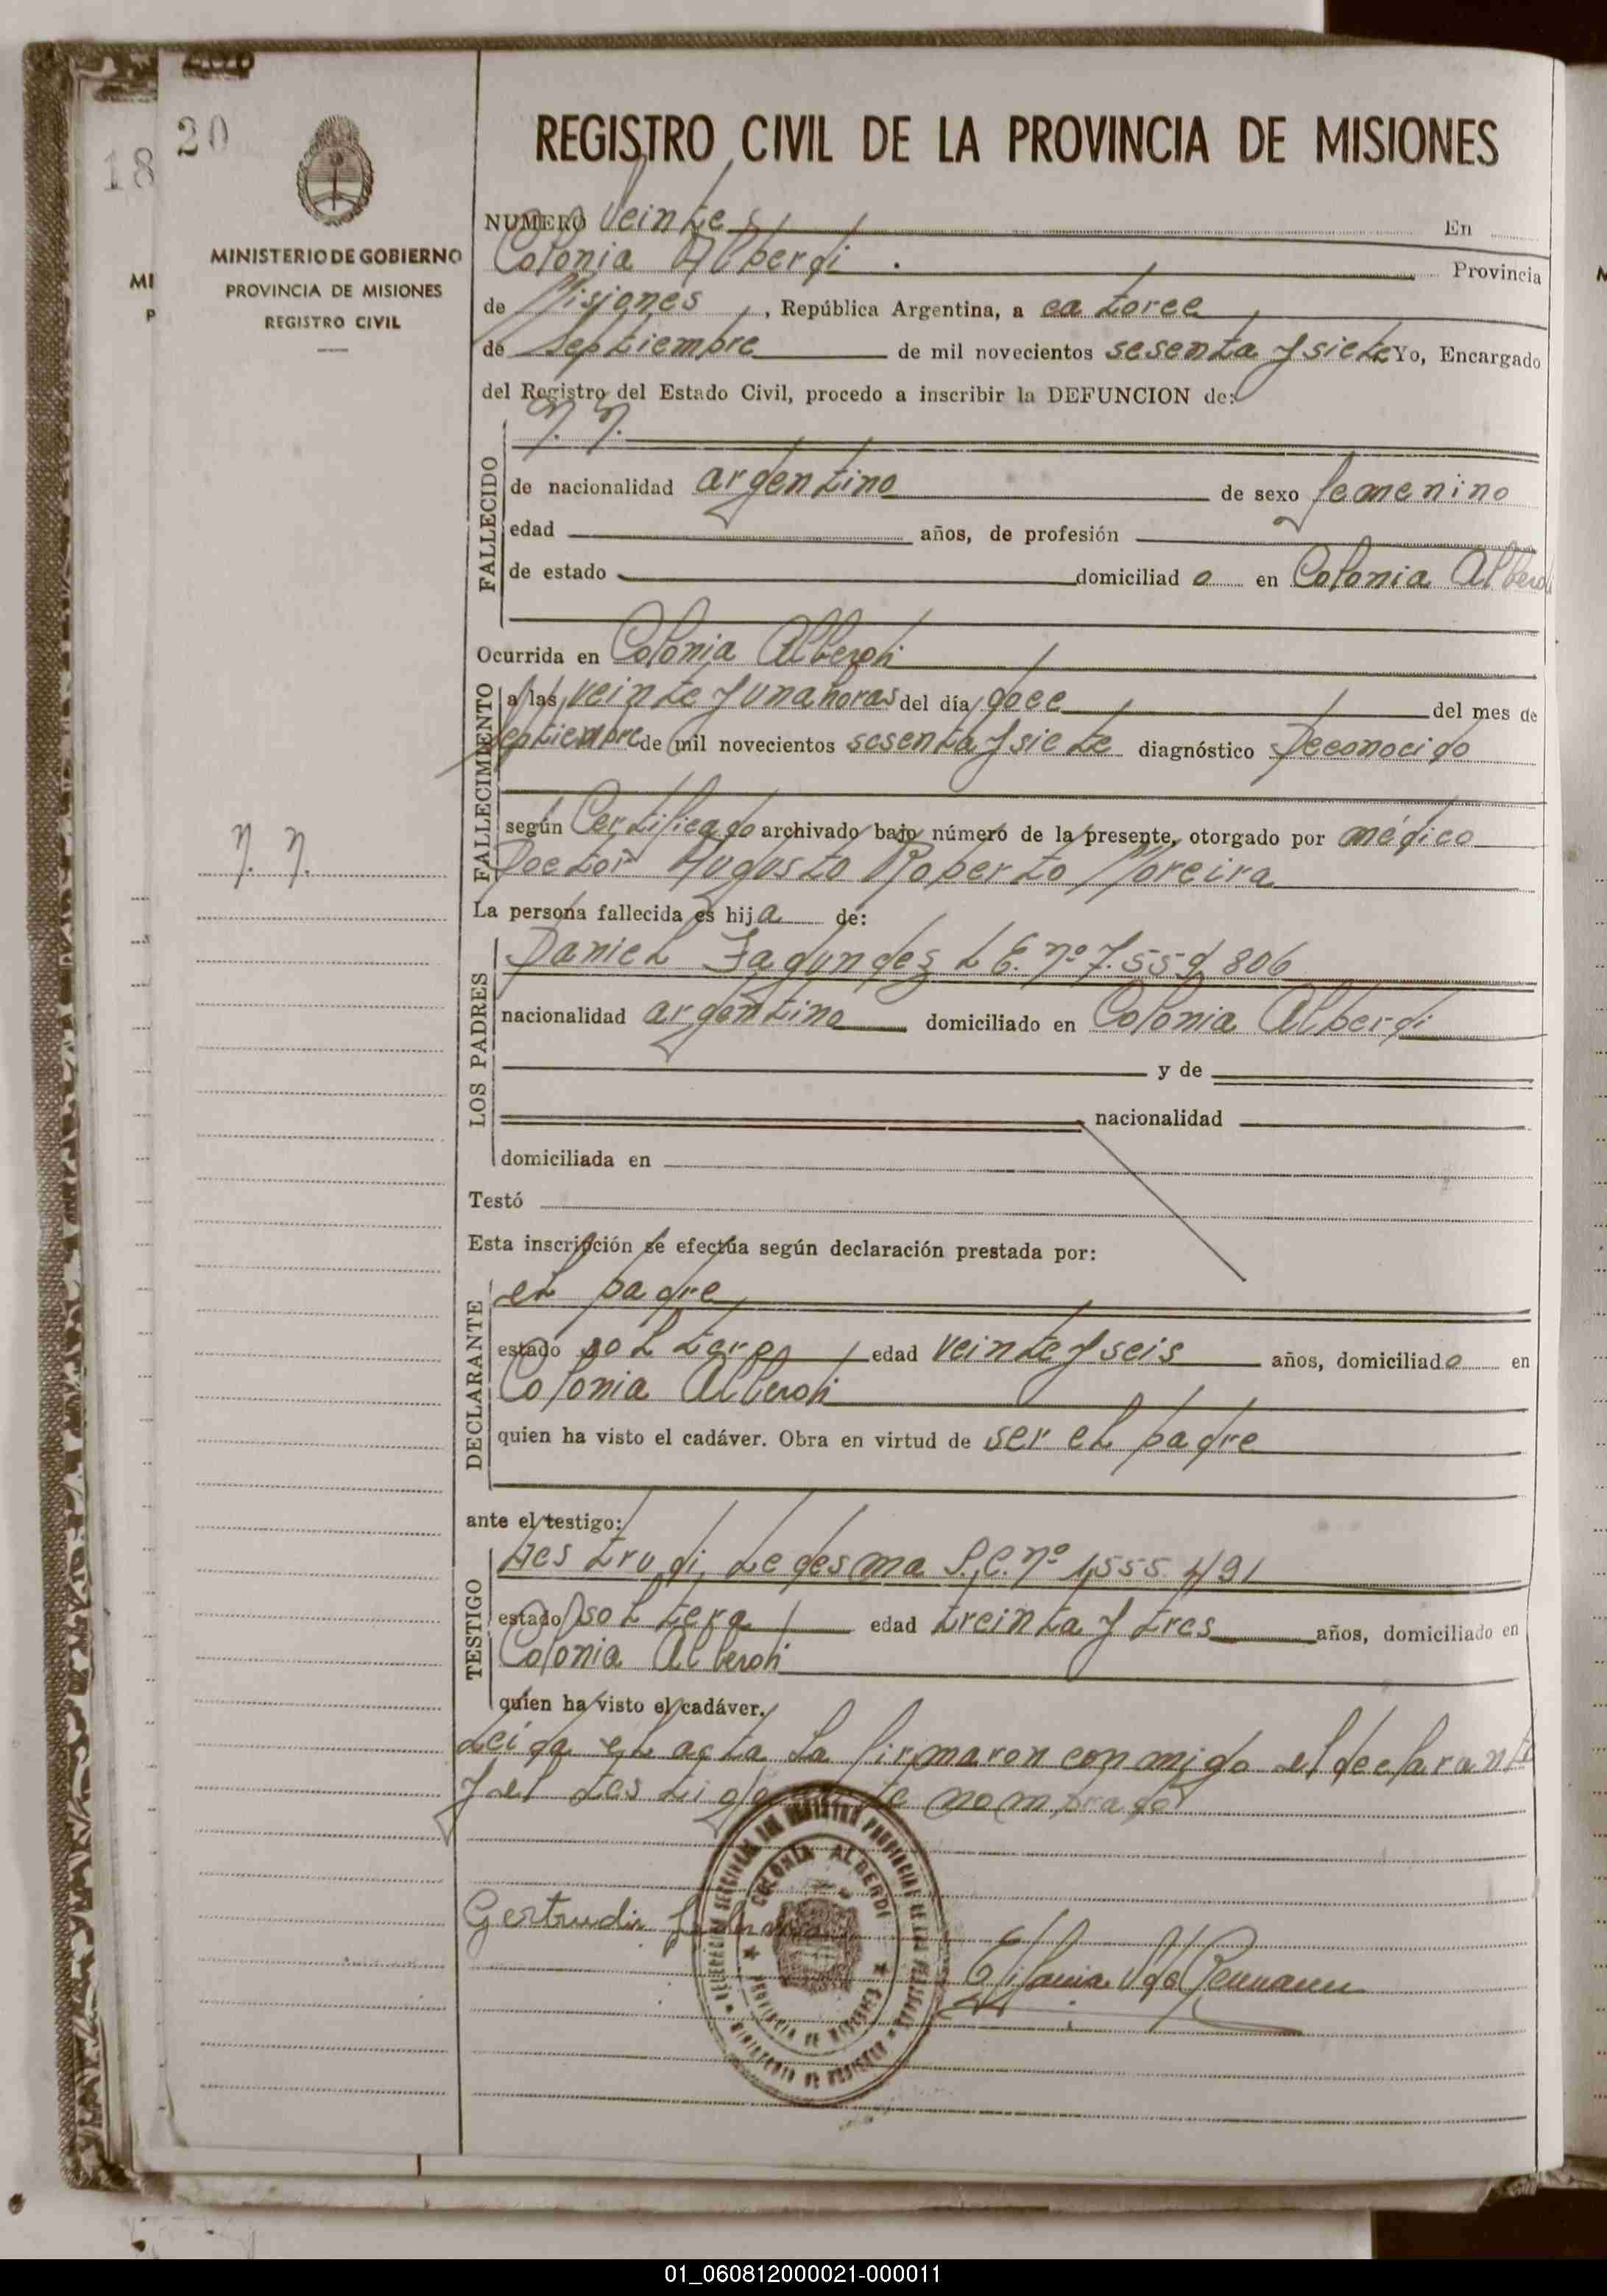 20
18
MINISTERIO DE GOBIERNO
PROVINCIA DE MISIONES
REGISTRO CIVIL
MI
P
REGISTRO CIVIL DE LA PROVINCIA DE MISIONES
NUMERO Veinte En
Colonia Alberdi Provincia
de Misiones, República Argentina, a catorce
de Septiembre de mil novecientos sesenta y siete Yo, Encargado
del Registro del Estado Civil, procedo a inscribir la DEFUNCION de:
N. N.
FALLECIDO
de nacionalidad argentino de sexo femenino
edad años, de profesión
de estado domiciliad o en Colonia Alberdi
Ocurrida en Colonia Alberdi
FALLECIMIENTO
a las veinte y una horas del día doce del mes de
Septiembre de mil novecientos sesenta y siete diagnóstico Deconocido
según Certificado archivado bajo número de la presente, otorgado por médico
Doctor Augusto Roberto Moreira
N. N.
La persona fallecida es hija de:
LOS PADRES
Daniel Fagundez L E. nº 7.559 806
nacionalidad argentino domiciliado en Colonia Alberdi
y de
nacionalidad
domiciliada en
Testó
Esta inscripción se efectúa según declaración prestada por:
DECLARANTE
el padre
estado soltero edad veinte y seis años, domiciliado en
Colonia Alberdi
quien ha visto el cadáver. Obra en virtud de ser el padre
ante el testigo:
TESTIGO
Ledesma S.C. nº 1,555.491
estado soltera edad treinta y tres años, domiciliado en
Colonia Alberdi
quien ha visto el cadáver.
Leida el acta la firmaron conmigo el declarante
y el testigo nombrado
COLONIA ALBERDI
PROVINCIA DE MISIONES
Gertrudis
01_060812000021-000011